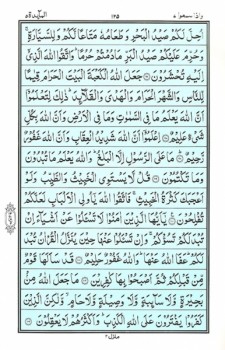 واذا سمعوا ٧
١٢٥
المائدة ٥
اُحِلَّ لَكُمۡ صَيۡدُ الۡبَحۡرِ وَطَعَامُهٗ مَتَاعًا لَّكُمۡ وَلِلسَّيَّارَةِ‌ ۚ
وَحُرِّمَ عَلَيۡكُمۡ صَيۡدُ الۡبَـرِّ مَا دُمۡتُمۡ حُرُمًا‌ ؕ وَاتَّقُوا اللّٰهَ الَّذِىۡۤ
اِلَيۡهِ تُحۡشَرُوۡنَ‏ ۞ جَعَلَ اللّٰهُ الۡـكَعۡبَةَ الۡبَيۡتَ الۡحَـرَامَ قِيٰمًا
لِّـلنَّاسِ وَالشَّهۡرَ الۡحَـرَامَ وَالۡهَدۡىَ وَالۡقَلَاۤٮِٕدَ‌ ؕ ذٰ لِكَ لِتَعۡلَمُوۡۤا
اَنَّ اللّٰهَ يَعۡلَمُ مَا فِى السَّمٰوٰتِ وَمَا فِى الۡاَرۡضِ وَاَنَّ اللّٰهَ بِكُلِّ
شَىۡءٍ عَلِيۡمٌ‏ ۞ اِعۡلَمُوۡۤا اَنَّ اللّٰهَ شَدِيۡدُ الۡعِقَابِ وَاَنَّ اللّٰهَ غَفُوۡرٌ
رَّحِيۡمٌ ؕ‏ ۞ مَا عَلَى الرَّسُوۡلِ اِلَّا الۡبَلٰغُ‌ ؕ وَاللّٰهُ يَعۡلَمُ مَا تُبۡدُوۡنَ
وَمَا تَكۡتُمُوۡنَ‏ ۞ قُلْ لَّا يَسۡتَوِى الۡخَبِيۡثُ وَالطَّيِّبُ وَلَوۡ
اَعۡجَبَكَ كَثۡرَةُ الۡخَبِيۡثِ‌ ۚ فَاتَّقُوا اللّٰهَ يٰۤاُولِى الۡاَلۡبَابِ لَعَلَّكُمۡ
تُفۡلِحُوۡنَ‏ ۞ يٰۤـاَيُّهَا الَّذِيۡنَ اٰمَنُوۡا لَا تَسۡـَٔـلُوۡا عَنۡ اَشۡيَآءَ اِنۡ
تُبۡدَ لَـكُمۡ تَسُؤۡكُمۡ‌ۚ وَاِنۡ تَسۡـَٔـلُوۡا عَنۡهَا حِيۡنَ يُنَزَّلُ الۡقُرۡاٰنُ تُبۡدَ
لَـكُمۡ ؕ عَفَا اللّٰهُ عَنۡهَا‌ ؕ وَاللّٰهُ غَفُوۡرٌ حَلِيۡمٌ‏ ۞ قَدۡ سَاَ لَهَا قَوۡمٌ
مِّنۡ قَبۡلِكُمۡ ثُمَّ اَصۡبَحُوۡا بِهَا كٰفِرِيۡنَ‏ ۞ مَا جَعَلَ اللّٰهُ مِنۡۢ
بَحِيۡرَةٍ وَّلَا سَآٮِٕبَةٍ وَّلَا وَصِيۡلَةٍ وَّلَا حَامٍ‌ ۙ وَّلٰـكِنَّ الَّذِيۡنَ
كَفَرُوۡا يَفۡتَرُوۡنَ عَلَى اللّٰهِ الۡـكَذِبَ‌ ؕ وَاَكۡثَرُهُمۡ لَا يَعۡقِلُوۡنَ‏ ۞
منزل ٢